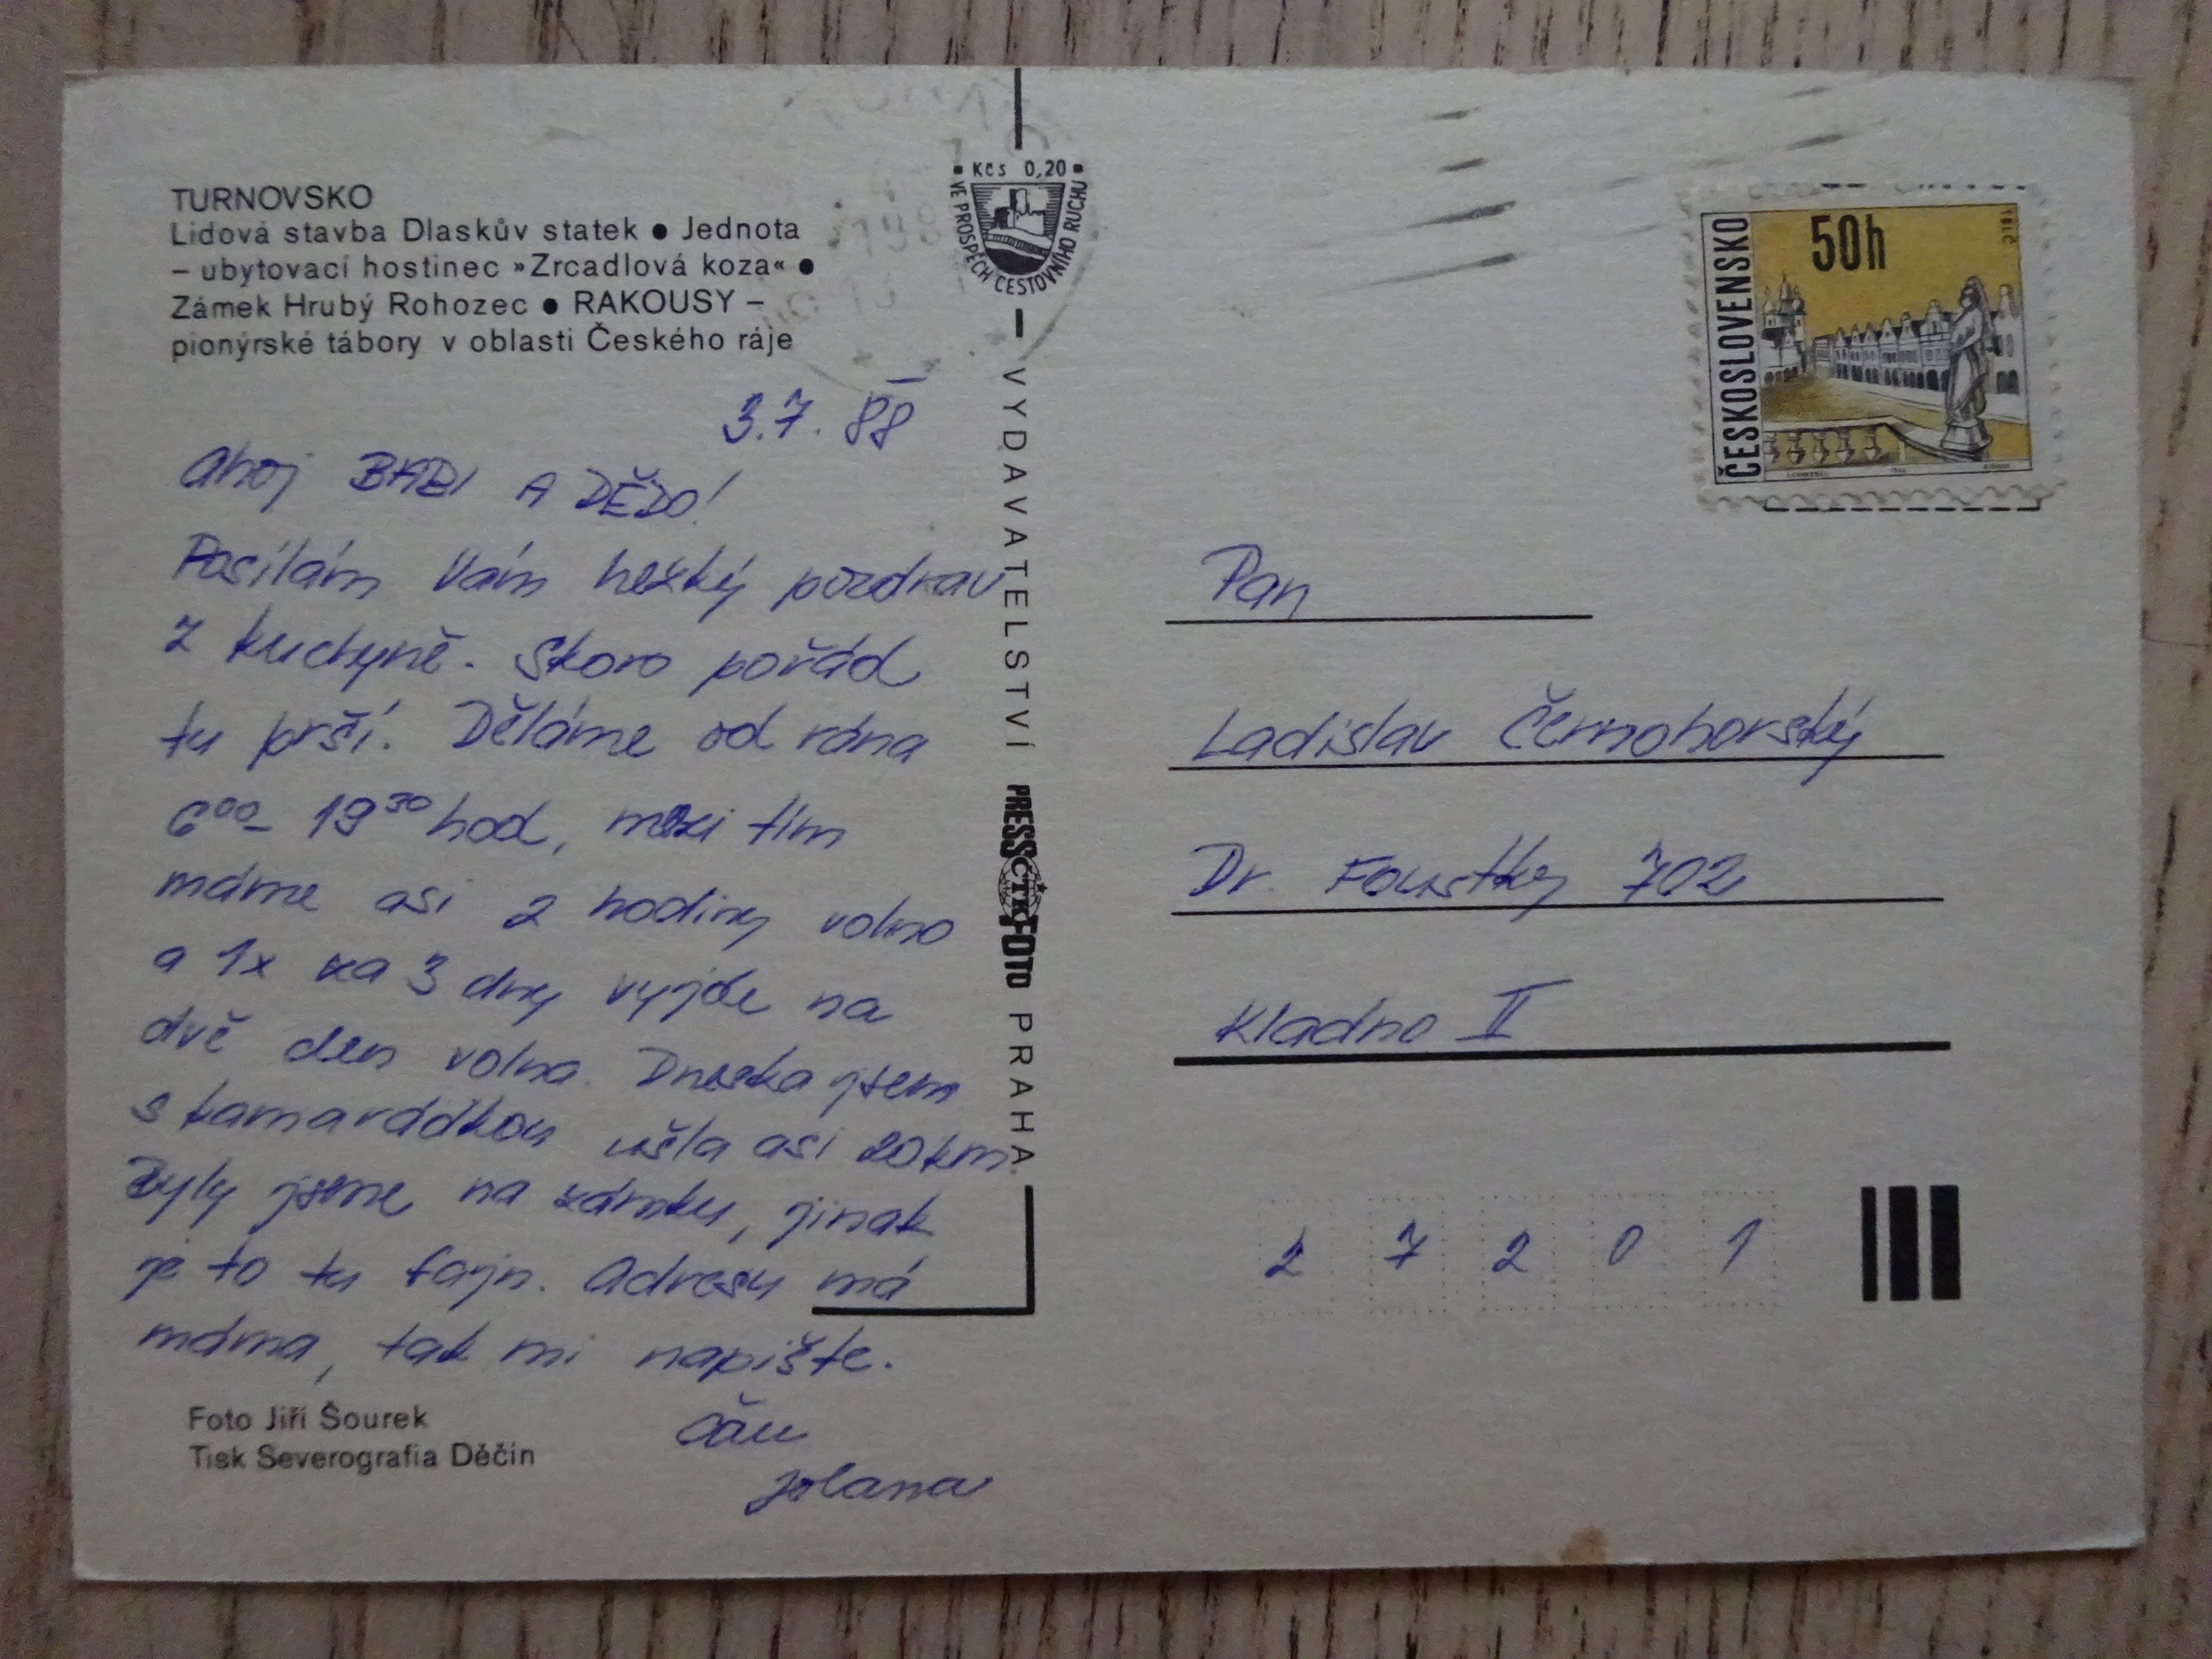 TURNOVSKO
Lidová stavba Dlaskův statek ● Jednota
– ubytovací hostinec »Zrcadlová koza« ●
Zámek Hrubý Rohozec ● RAKOUSY –
pionýrské tábory v oblasti Českého ráje
3.7. 88
Ahoj BABI A DĚDO!
Posílám Vám hezký pozdrav
z kuchyně. Skoro pořád
tu prší. Děláme od rána
6⁰⁰- 19³⁰ hod, mezi tím
máme asi 2 hodiny volno
a 1x za 3 dny vyjde na
dvě den volna. Dneska jsem
s kamarádkou ušla asi 20km
Byly jsme na zámku, jinak
je to tu fajn. Adresu má
máma, tak mi napište.
Čáu
Jolana
Foto Jiří Šourek
Tisk Severografia Děčín
Kčs 0,20
VE PROSPĚCH CESTOVNÍHO RUCHU
VYDAVATELSTVÍ PRESSFOTO PRAHA
ČTK
ČESKOSLOVENSKO
50h
TELČ
Pan
Ladislav Černohorský
Dr. Foustky 702
Kladno II
2 7 2 0 1